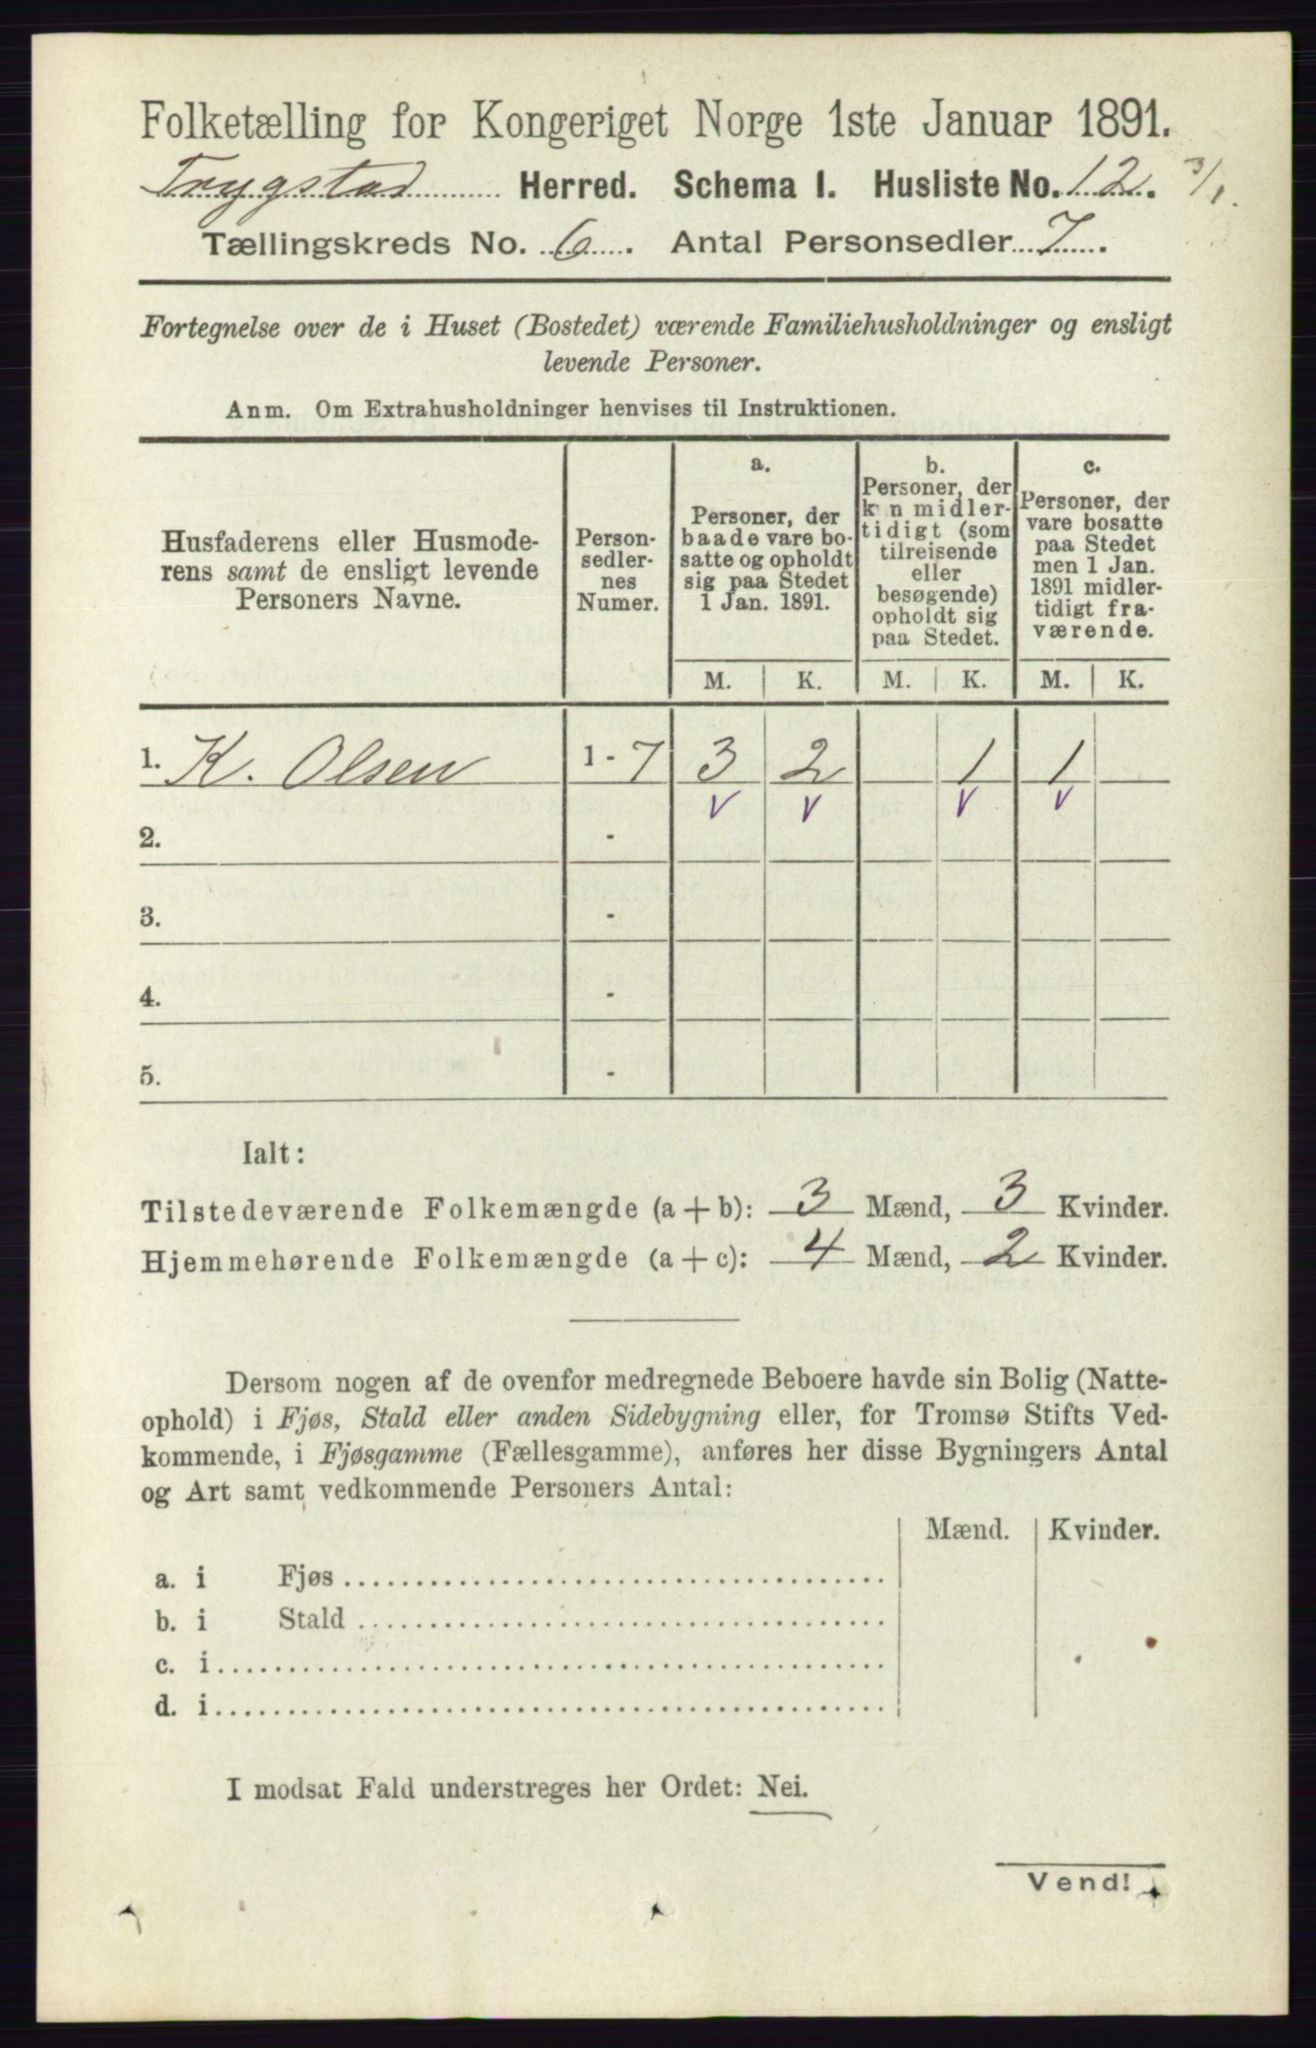 Folketælling for Kongeriget Norge 1ste Januar 1891.
Trygstad Herred. Schema I. Husliste No. 12. 3/1.
Tællingskreds No. 6. Antal Personsedler 7.
Fortegnelse over de i Huset (Bostedet) værende Familiehusholdninger og ensligt
levende Personer.
Anm. Om Extrahusholdninger henvises til Instruktionen.
Husfaderens eller Husmode-
rens samt de ensligt levende
Personers Navne.
Person-
sedler-
nes
Numer.
a.
Personer, der
baade vare bo-
satte og opholdt
sig paa Stedet
1 Jan. 1891.
b.
Personer, der
k n midler-
tidigt (som
tilreisende
eller
besøgende)
opholdt sig
paa Stedet.
c.
Personer, der
vare bosatte
paa Stedet
men 1 Jan.
1891 midler-
tidigt fra-
værende.
M. K. M. K. M. K.
1. K. Olsen 1 - 7 3 2 1 1
v v v v
2. -
3. -
4. -
5. -
Ialt:
Tilstedeværende Folkemængde (a + b): 3 Mænd, 3 Kvinder.
Hjemmehørende Folkemængde (a + c): 4 Mænd, 2 Kvinder.
Dersom nogen af de ovenfor medregnede Beboere havde sin Bolig (Natte-
ophold) i Fjøs, Stald eller anden Sidebygning eller, for Tromsø Stifts Ved-
kommende, i Fjøsgamme (Fællesgamme), anføres her disse Bygningers Antal
og Art samt vedkommende Personers Antal:
Mænd. Kvinder.
a. i Fjøs
b. i Stald
c. i
d. i
I modsat Fald understreges her Ordet: Nei.
Vend!